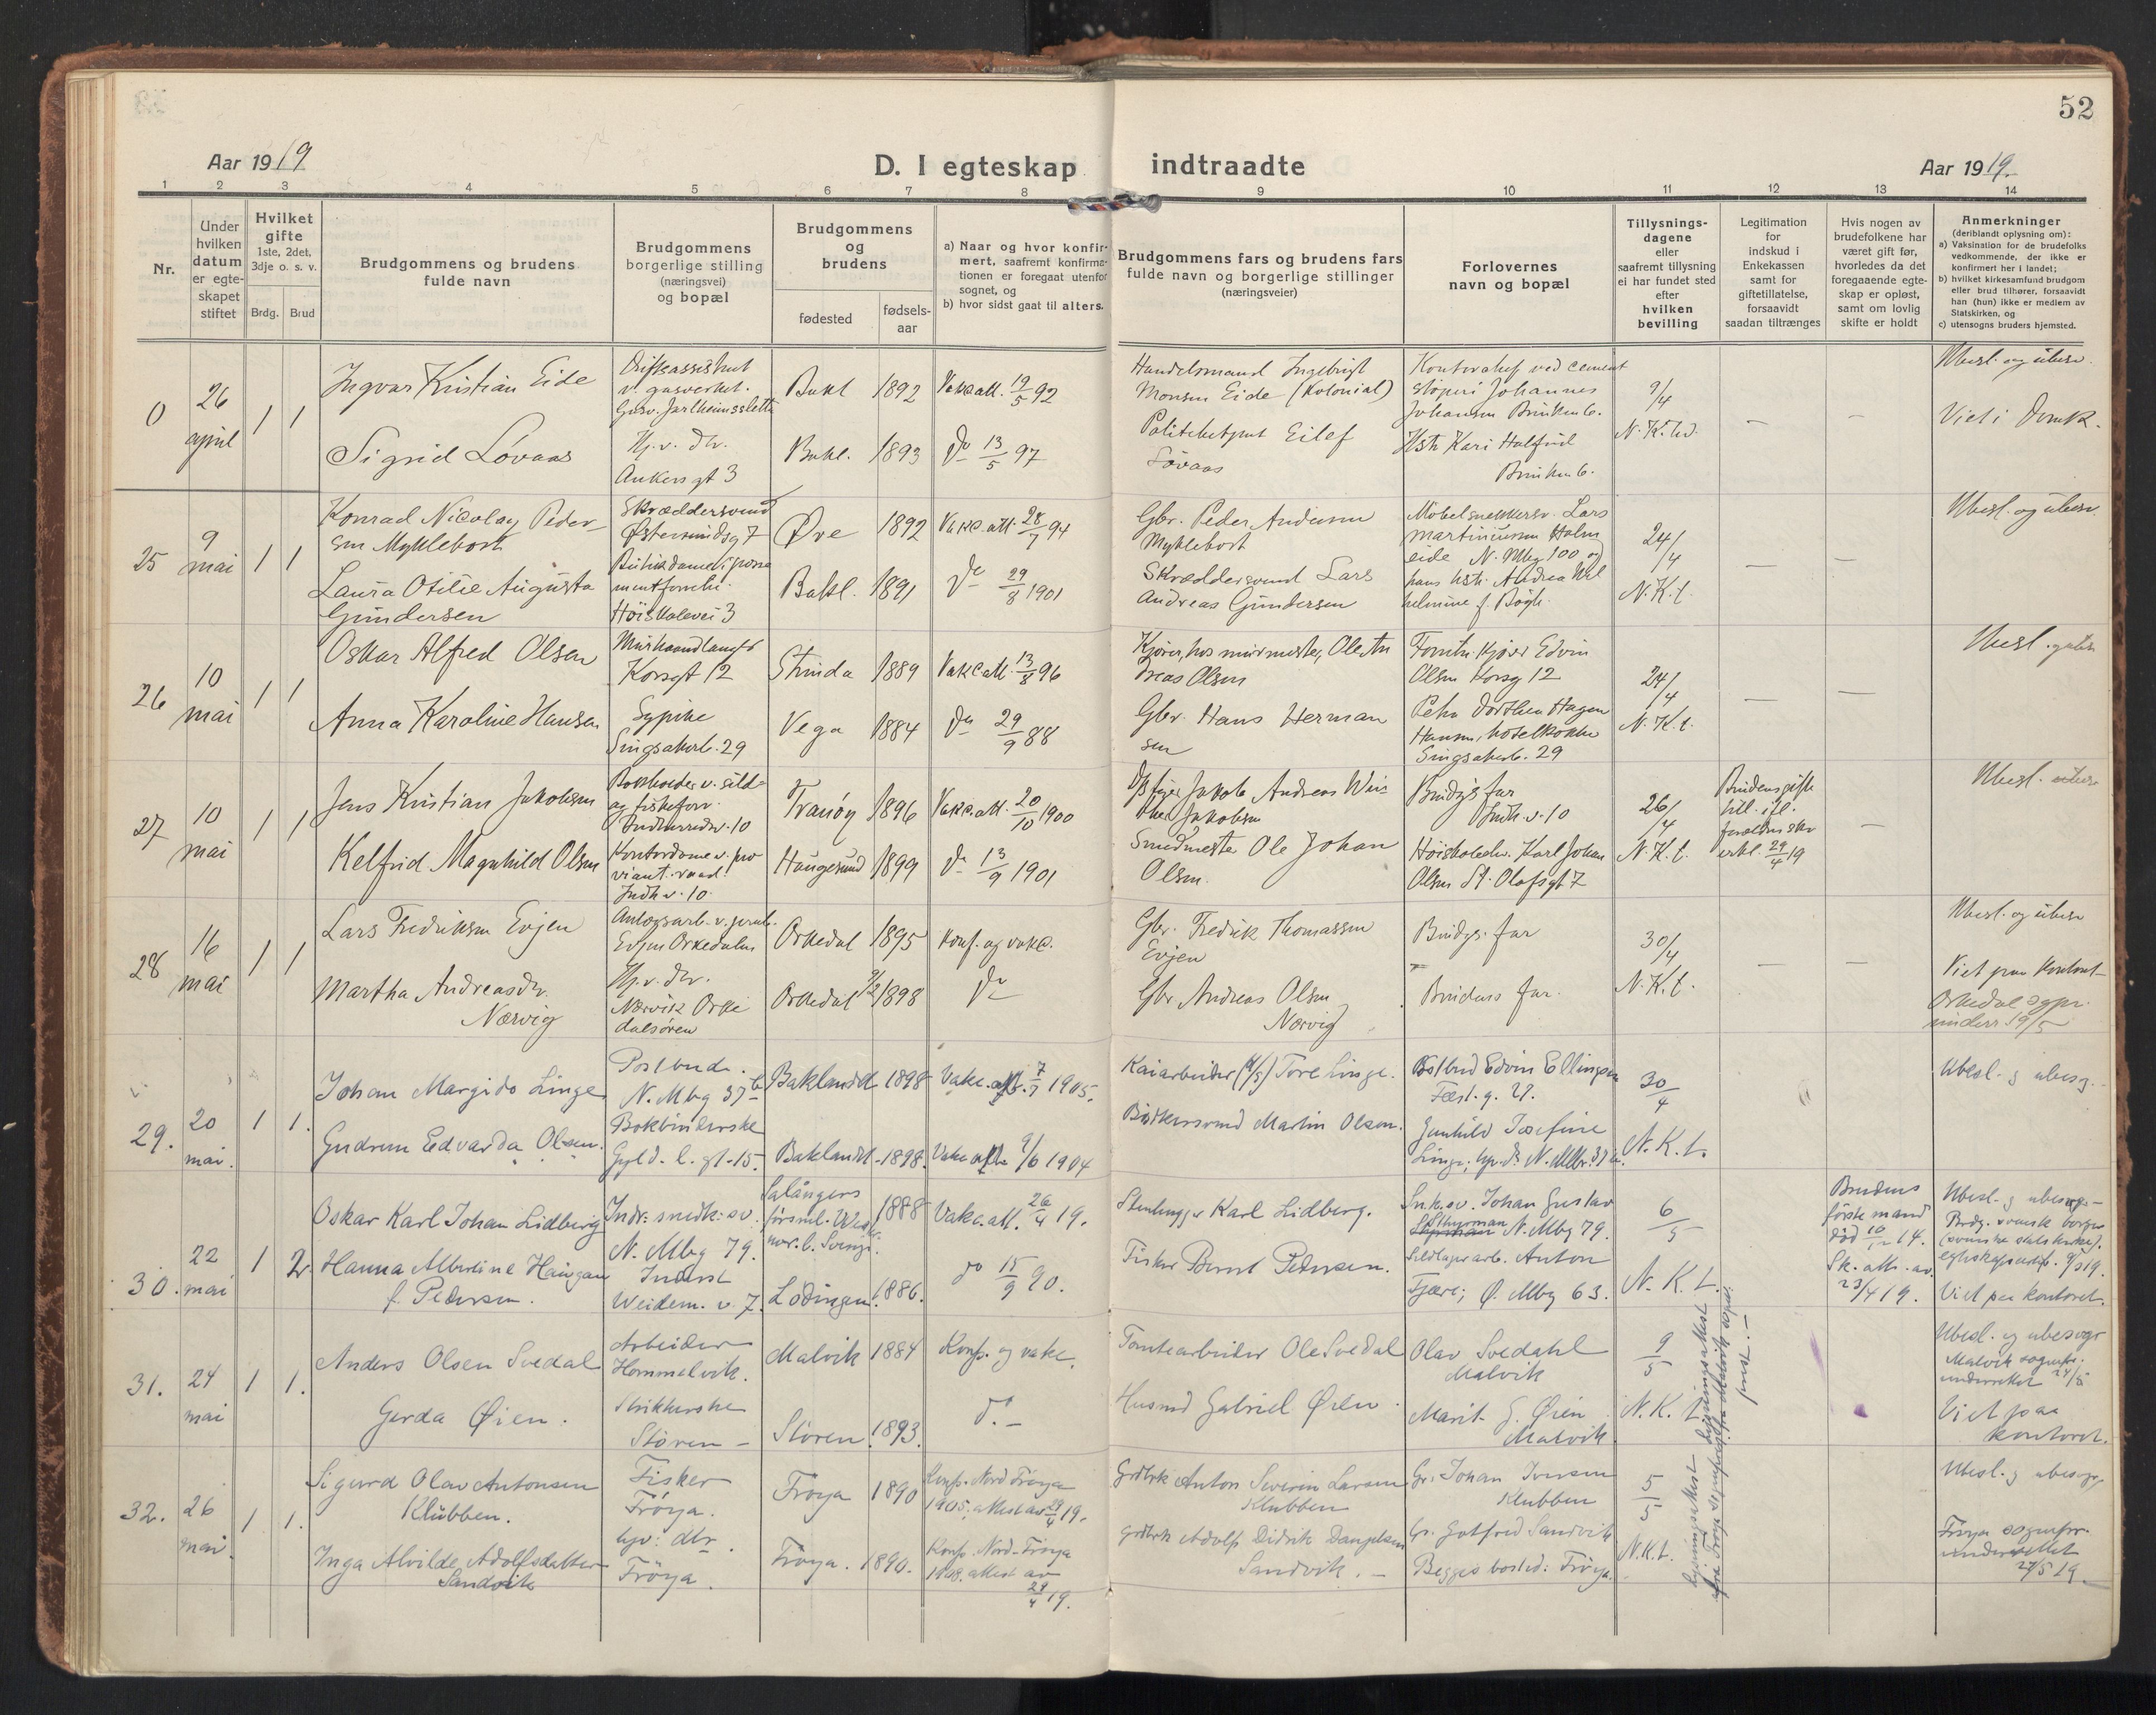 52
Aar 1919
D. I egteskap indtraadte
Aar 1919.
1 2 3 4 5 6 7 8 9 10 11 12 13 14
Nr.
Under
hvilken
datum
er egte-
skapet
stiftet
Hvilket
gifte
1ste, 2det,
3dje o. s. v.
Brdg. Brud
Brudgommens og brudens
fulde navn
Brudgommens
borgerlige stilling
(næringsvei)
og bopæl
Brudgommens
og
brudens
fødested
fødsels-
aar
a) Naar og hvor konfir-
mert, saafremt konfirma-
tionen er foregaat utenfor
sognet, og
b) hvor sidst gaat til alters.
Brudgommens fars og brudens fars
fulde navn og borgerlige stillinger
(næringsveier)
Forlovernes
navn og bopæl
Tillysnings-
dagene
eller
saafremt tillysning
ei har fundet sted
efter
hvilken
bevilling
Legitimation
for
indskud i
Enkekassen
samt for
giftetillatelse,
forsaavidt
saadan tiltrænges
Hvis nogen av
brudefolkene har
været gift før,
hvorledes da det
foregaaende egte-
skap er opløst,
samt om lovlig
skifte er holdt
Anmerkninger
(deriblandt oplysning om):
a) Vaksination for de brudefolks
vedkommende, der ikke er
konfirmert her i landet;
b) hvilket kirkesamfund brudgom
eller brud tilhører, forsaavidt
han (hun) ikke er medlem av
Statskirken, og
c) utensogns bruders hjemsted.
0
26
april
1 1
Ingvar Kristian Eide
Driftsassistent
v. gasverket.
Bakl 1892
Vakc.att. 19/5 92
Handelsmand Ingebrigt
Monsen Eide (Kolonial)
støperi Johannes
9/4
Ubesl. og ubesv.
Sigrid Løvaas
Hj. v. dtr.
Ankersgt 3
Bakl. 1893
Do 13/5 97
Politibetjent Eilef
Løvaas
N.K.td.
Viet i Domk.
25
9
mai
1 1
Konrad Nicolay Peder-
sen Myklebost
Skræddersvend
Øve 1892
Vakc.att. 28/7 94
Gbr. Peder Andersen
Myklebost
Møbelsnekkersv. Lars
Martiniussen Holm
eide N. Mbg 100 og
24/4
Ubesl. og ubesv.
Laura Otilie Augusta
Gundersen
Høiskolevei 3
Bakl. 1891
Do 29/8 1901
Skræddersvend Lars
Andreas Gundersen
hans hstr. Andrea Wil
helmine f. Bøgh.
N.K.t.
26
10
mai
1 1
Oskar Alfred Olsen
Murhaandlanger
Korsgt 12
Strinda 1889
Vakc.att. 13/8 96
Kjører, hos murmester, Ole An
dreas Olsen
Olsen Korsg 12
24/4
Anna Karoline Hansen
Sypike
Singsakerb. 29
Vega 1884
Do 29/9 88
Gbr. Hans Herman
sen
Petra Dorthea Hagen
Hansen, hotelkokke
Singsakerb. 29
N.K.t.
27
10
mai
1 1
Jens Kristian Jakobsen
Bokholder v. sild-
og fiskeforr.
Tranøy 1896
Vakc.att. 20/10 1900
Brudgs far
Indh. v. 10
26/4
Kelfrid Magnhild Olsen
Kontordame v. pro
viant. raad.
Indh v. 10
Haugesund 1899
Do 13/9 1901
Smedmester Ole Johan
Olsen.
Karl Johan
Olsen St. Olafsgt 7
N.K.t.
erkl. 29/4 19
28
16
mai
1 1
Lars Fredriksen Evjen
Evjen Orkedalen
Orkedal 1895
Konf. og vakc.
Gbr. Fredrik Thomassen
Evjen
Brudgs. far
30/4
Ubesl. og ubesv
Martha Andreasdr.
Nærvig
Hj. v. dtr.
Nærvik Orke
dalsøren
Orkedal 1898
Do
Gbr Andreas Olsen
Nærvig
Brudens far.
N.K.t.
Viet paa kontoret
Orkedal sogpr.
underr 19/5
29.
20
mai.
1 1.
Johan Margido Linge
Postbud.
N. Mbg 37b
Baklandet 1898
Vakc. att. 7/7 1905.
Kaiarbeider Tore Linge.
Postbud Edvin Ellingsen
Fæst. g. 27.
30/4
Ubesl. og ubesv.
Gudrun Edvarda Olsen.
Bokbinderske
Gyld. l. gt. 15.
Baklandet 1898.
Vakc att 9/6 1904
Bødkersvend Martin Olsen.
Gunhild Josefine
N.K.t.
30.
22
mai
1 2.
Oskar Karl Johan Lidberg
Indr. snedk. sv.
N. Mbg 79.
Salångers
1888
Vakc.att. 26/4 19.
Stenhugger Karl Lidberg.
Sn.k.sv. Johan Gustav
N. Mbg 79.
6/5
Brudens
første mand
død
Sk. att. av
23/4 19.
Ubesl. og ubesvog.
Brdg. svensk borger
(svenske statskirke).
Viet paa kontoret.
Hanna Albertine Haugan
f. Pedersen.
Weidem. v. 7.
Lødingen. 1886.
do 15/9 90.
Fisker Bernt Pedersen.
Sildlagerarb. Anton
Fjære; Ø. Mbg 63.
N.K.t.
31.
24
mai
1 1.
Anders Olsen Svedal
Arbeider
Hommelvik.
Malvik 1884
Konf. og vakc.
Tomtearbeider Ole Svedal
Olav Svedahl
Malvik
9/5
Ubesl. og ubesvogr
Malvik sognepr.
underrettet 24/5
Gerda Øien.
Strikkerske
Støren
Støren 1893.
do.
Husmd Gabriel Øien.
Marit G. Øien
Malvik.
N.K.t.
Viet paa
kontoret.
Lysningsattest fra Malvik sognepr.
32.
26
mai.
1 1.
Sigurd Olav Antonsen
Klubben.
Fisker
Frøya.
Frøya 1890
Konf. Nord Frøya
1905; attest av 29/4 19.
Grdbrk Anton Severin Larsen
Klubben
Gr. Johan Iversen
Klubben
5/5
Ubesl. og ubesvog.
Inga Alvilde Adolfsdatter
Sandvik
hjv: dtr.
Frøya.
Frøya. 1890.
Konf. Nord-Frøya
1908. attest av
29/4 19.
Grdbrk Adolf Didrik Danielsen
Sandvik.
Gr. Gotfred Sandvik
Begges bosted: Frøya.
N.K.t.
Lysningsattest fra Frøya sognepr.
Frøya sognepr.
underrettet
27/5 19.